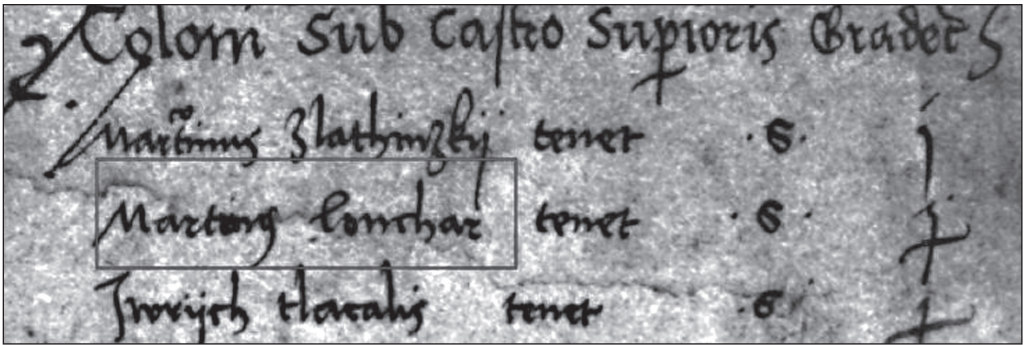 Coloni Sub Castro Superioris Gradecz
Martinus Zlathinzkij tenet · S · j
Martinus lonchar tenet · S · j
Jwrijch tlacalis tenet · S